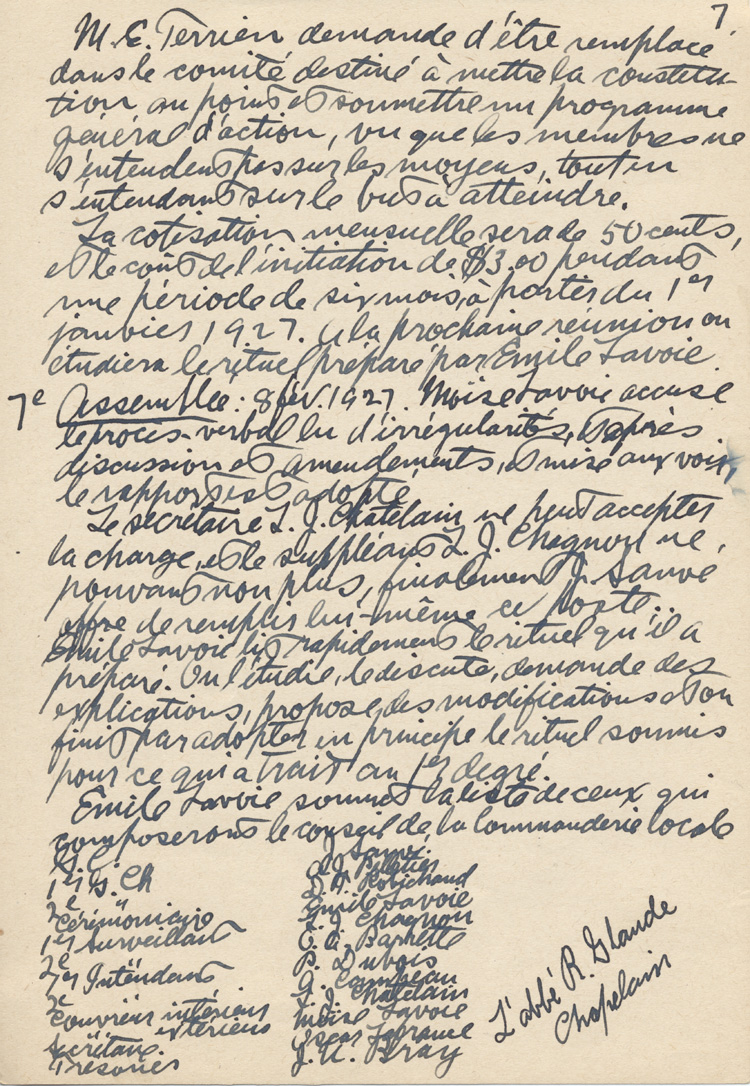 7
M. E. Terrien demande d'être remplacé
dans le comité destiné à mettre la constitu-
tion au point et soumettre un programme
général d'action, vu que les membres ne
s'entendent pas sur les moyens, tout en
s'entendant sur le but à atteindre.
La cotisation mensuelle sera de 50 cents,
et le coût de l'initiation de $3.00 pendant
une période de six mois, à partir du 1er
janvier 1927. A la prochaine réunion on
étudiera le rituel préparé par Emile Lavoie.
7e Assemblée: 8 fév. 1927. Moïse Lavoie accuse
le procès-verbal lu d'irrégularités, et après
discussion et amendements, et mise aux voix,
le rapport est adopté.
Le secrétaire L. J. Chatelain, ne peut accepter
la charge, et le suppléant L. J. Chagnon ne
pouvant non plus, finalement J. Sauvé
offre de remplir lui-même ce poste.
Emile Lavoie lit rapidement le rituel qu'il a
préparé. On l'étudie, le discute, demande des
explications, propose des modifications et on
finit par adopter en principe le rituel soumis
pour ce qui a trait au 1er degré.
Emile Lavoie soumet la liste de ceux qui
composeront le conseil de la Commanderie locale
J. Sauvé
1er G. Ch
Pelletier
2e "
Robichaud
Cérémoniaire Emile Lavoie
1er Surveillant L. J. Chagnon
2e " Barrette
1er Intendant P. Dubois
2e "
Couvreur intérieur L. J. Chatelain
" extérieur Moïse Lavoie
Secrétaire Oscar Lafrance
Trésorier J. U. Bray
L'abbé R. Glaude
Chapelain